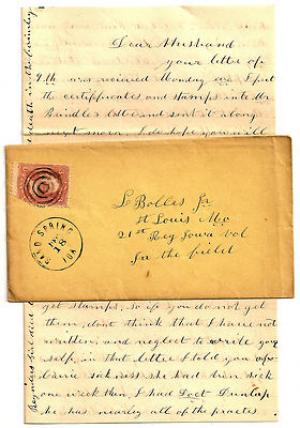 Dear Husband
your letter of
9th was received Monday eve I put
the certifficates and stamps into Mr
Brindles letter and sent it along
next morn. I do hope you will
SAND SPRING
DEC
18
IOA
L Bolles Jr
St Louis Mo
21st Reg Iowa Vol
In the field
get stamps, so if you do not get
them, dont think that I have not
written, and neglect to write your
self, in that letter I told you of
sickness she had been sick
one week then I had Doct Dunlap
he has nearly all of the practes